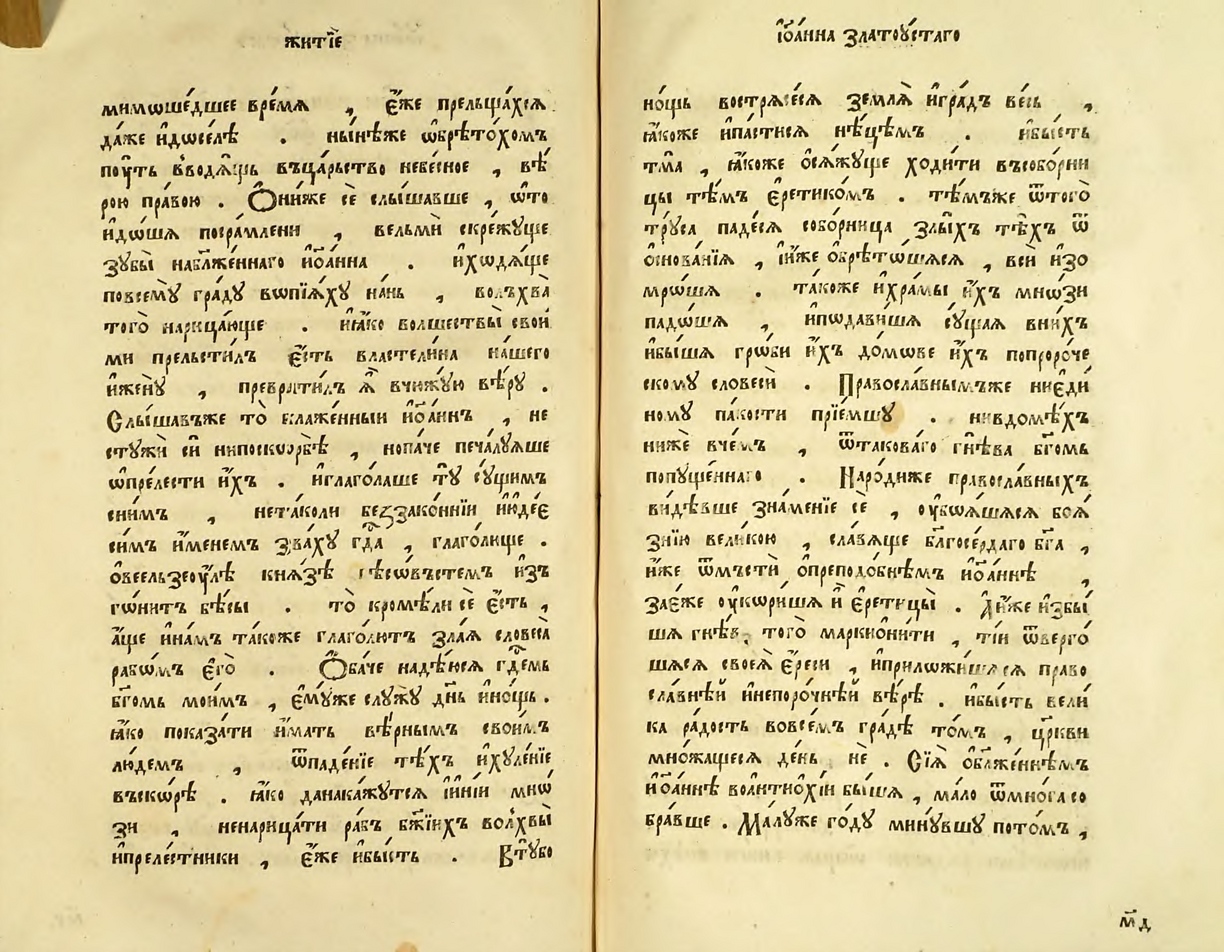 житїе
мимѡшедшее время , еже прельщахся
даже идѡселѣ . нынѣже ѡбрѣтохомъ
поуть вводящь въцарьство небесное , вѣ
рою правою . Ониже се слышавше , ѡто
идѡша посрамлени , вельми скрежуще
зубы наблаженнаго иѡанна . ихѡдяще
повсему граду вѡпїяху нань , волъхва
того нарицающе . ияко волшествы свои
ми прельстилъ есть властелина нашего
ижену , превратилъ ѧ вчюжую вѣру .
Слышавъже то блаженныи иѡаннъ , не
стужи си нипоскѡрбѣ , нопаче печалуяше
ѡпрелести ихъ . иглаголаше ту сущимъ
снимъ , нетаколи беззаконнїи июдее
симъ именемъ зваху гда , глаголюще .
овеельзеоулѣ князѣ бѣсѡвъстемъ изъ
гѡнитъ бѣсы . то кромѣли се есть ,
аще инамъ такоже глаголютъ злая словеса
рабѡмъ его . Обаче надѣюся гдемь
бгомь моимъ , емуже служу днь инощь .
яко показати имать вѣрнымъ своимъ
людемъ , ѿпаденїе тѣхъ ихуленїе
въскорѣ . яко данакажутся iинїи мнѡ
зи , ненарицати рабъ бжїихъ волхвы
ипрелестники , еже ибысть . Втубо
іѡанна златоустаго
нощь вострясеся земля иградъ весь ,
якоже ипастися нѣцѣмъ . ибысть
тма , якоже осяжуще ходити въсоборни
цы тѣмъ еретикомъ . тѣмъже ѿтого
труса падеся соборница злыхъ тѣхъ ѿ
основанїя , iиже обрѣтѡшяся , вси изо
мрѡша . такоже ихрамы ихъ мнѡзи
падѡша , ипѡдавишя сущая внихъ
ибышя грѡби ихъ домѡве ихъ попророче
скому словеси . Православнымъже ниеди
ному пакости прїемшу . нивдомѣхъ
ниже вчемъ , ѿтаковаго гнѣва бгомь
попущеннаго . Народиже православныхъ
видѣвше знаменїе се , оубѡяшяся боя
знїю великою , славяще благосердаго бга ,
иже ѿмьсти опреподобнѣмъ иѡаннѣ ,
заеже оукѡришя и еретицы . Аиже избы
шя гнѣва того маркионити , тїи ѿверго
шяся своея ереси , иприлѡжишяся право
славнѣи инепорочнѣи вѣрѣ . ибысть вели
ка радость вовсемъ градѣ томъ , цркви
множащеся день не . Сїя облаженнѣмъ
иѡаннѣ волнтиохїи бышя , мало ѿмнога со
бравше . Малуже году минувшу потомъ ,
м҃д